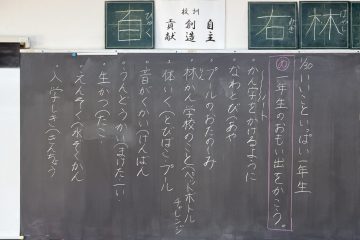 百
ひゃく
校訓
自主
創造
貢献
右
みぎ
林
はやし
1/30 いいこといっぱい一年生
め 一年生のおもい出をかこう。
ノート
・かん字をかけるように
・なわとび(あや
・プールのおたのしみ
・林かん学校のこと(ペットボトル
チャレンジ
・体いく(とびばこ プール
・音がくかい(けんばん
・うんどうかい(まけた
・生かつ(たこ
・えんそく(水ぞくかん
・入学しき(きんちょう